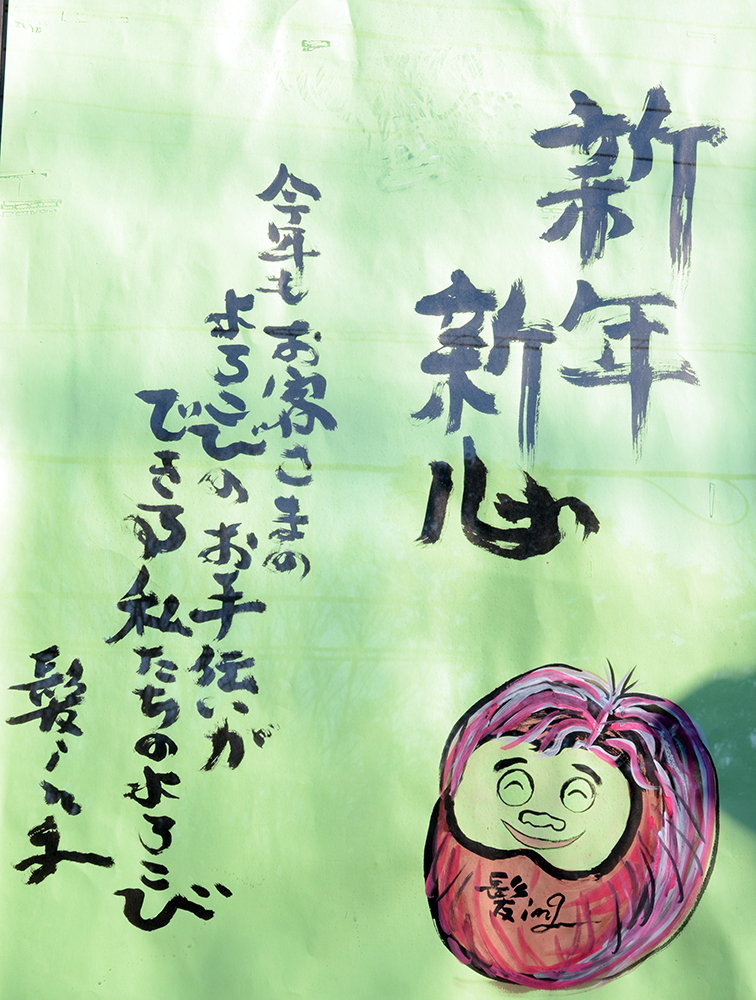 新年
新心
今年もお客さまの
よろこびのお手伝いが
できる私たちのよろこび
髪
髪ing